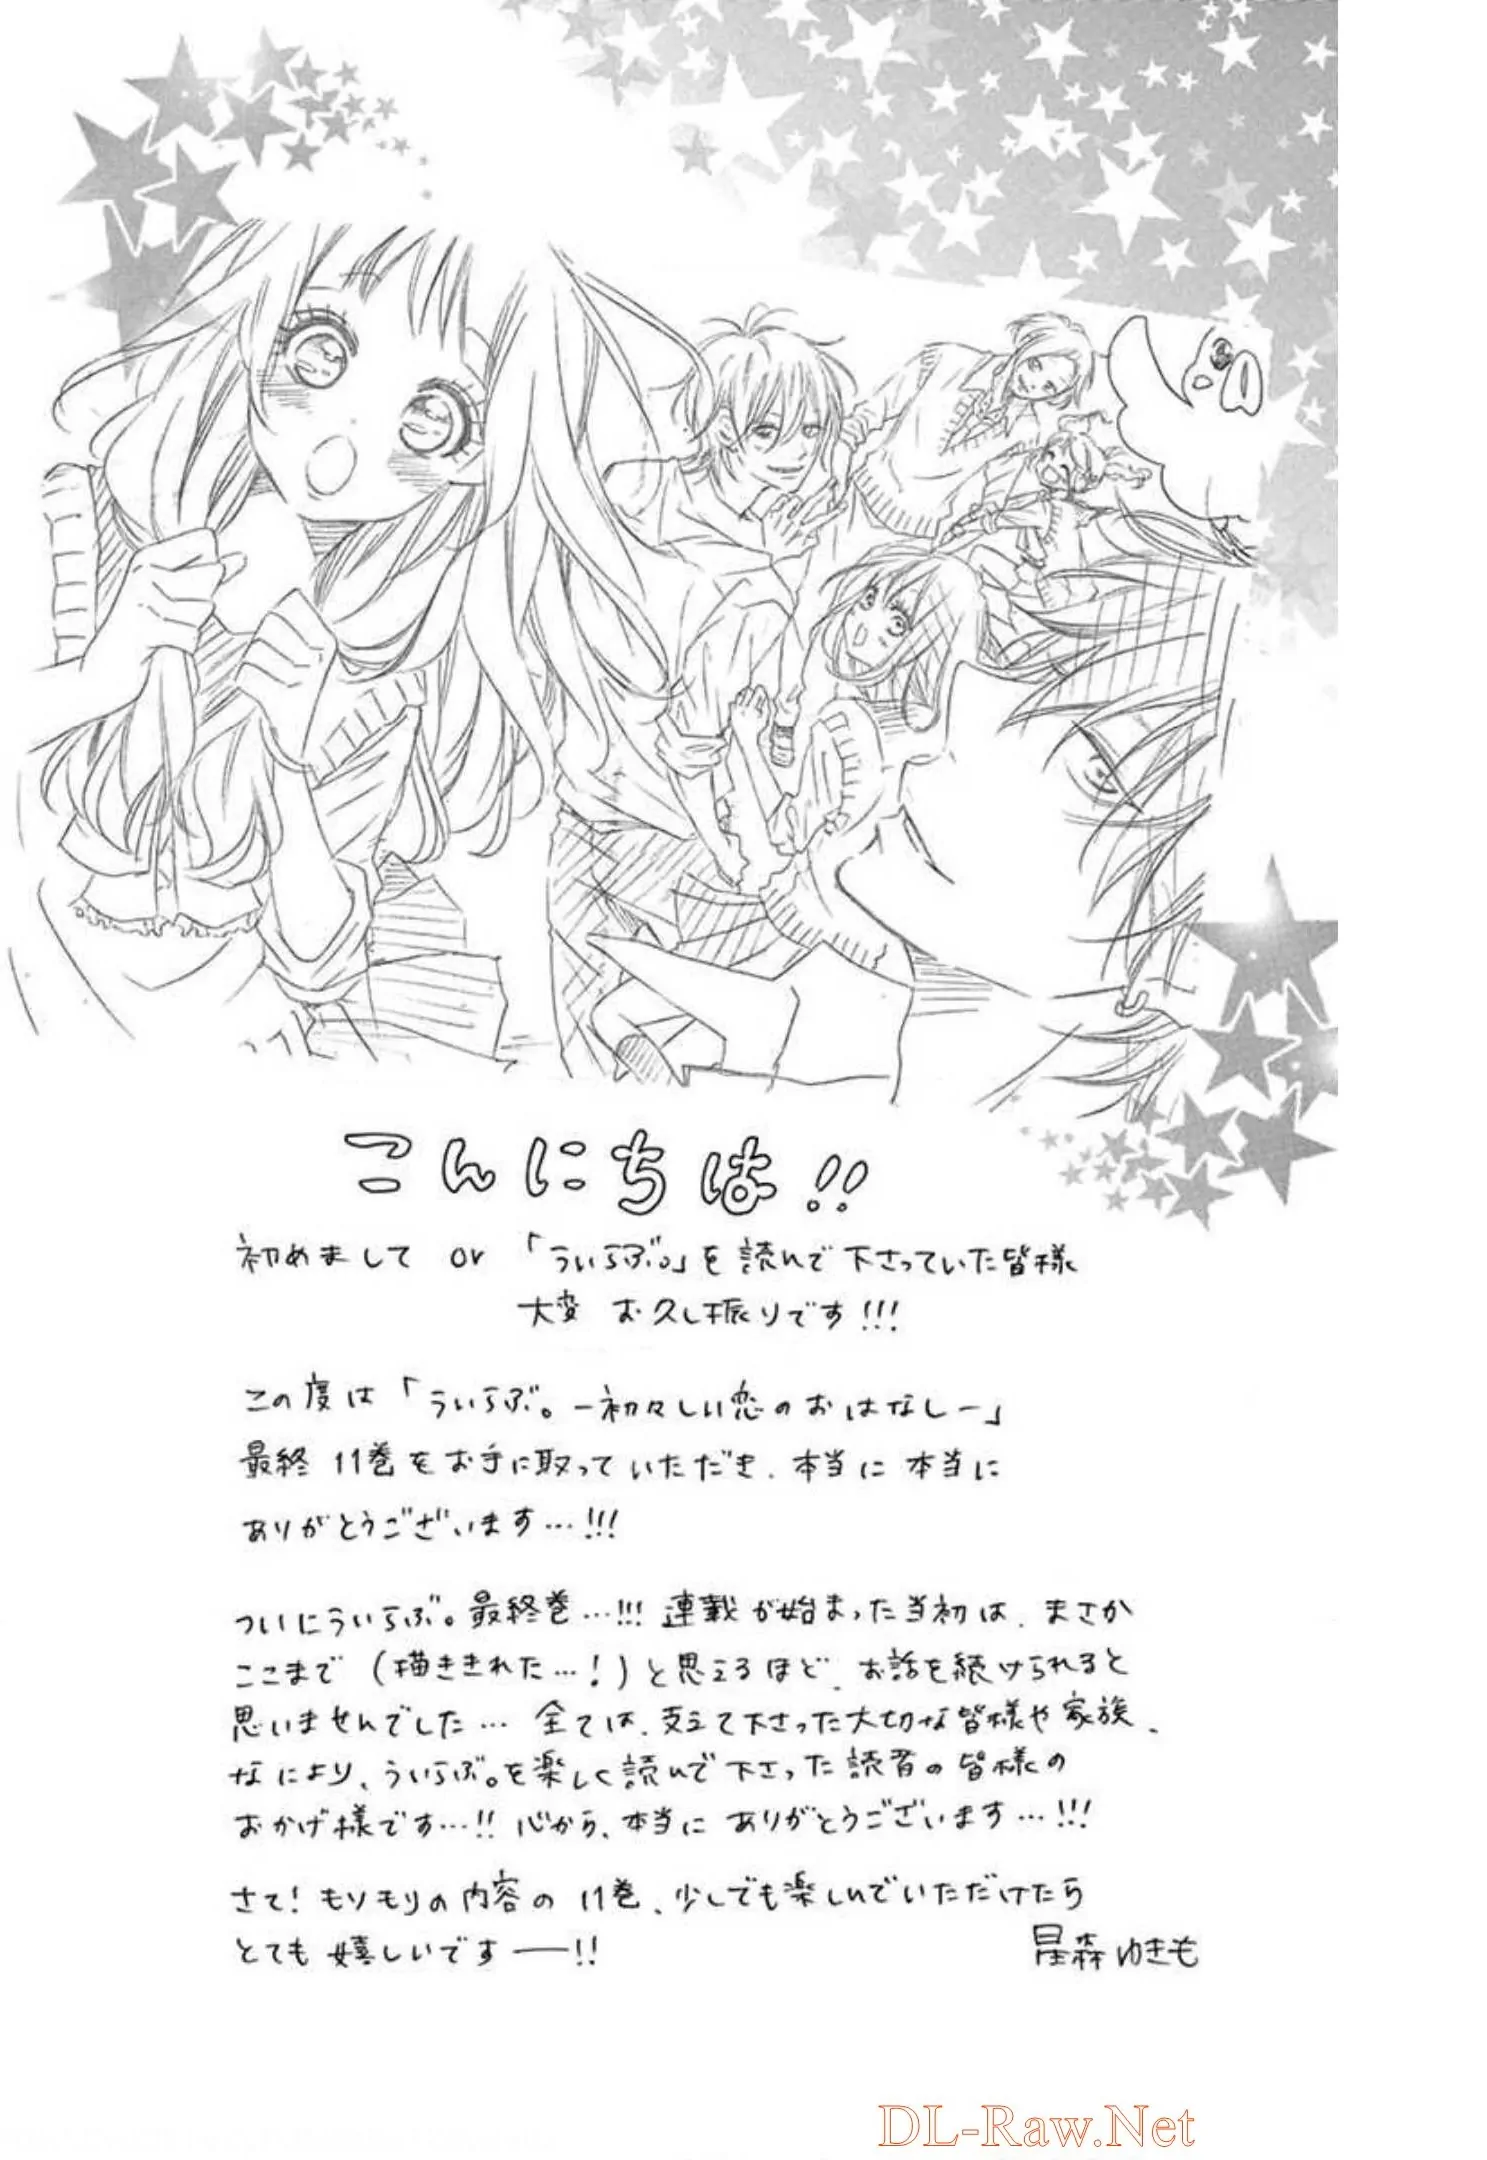 こんにちは!!
初めまして or 「ういらぶ。」を読んで下さっていた皆様
大変 お久し振りです!!!
この度は「ういらぶ。ー初々しい恋のおはなしー」
最終 11巻をお手に取っていただき、本当に 本当に
ありがとうございます…!!!
ついにういらぶ。最終巻…!!! 連載が始まった当初は、まさか
ここまで (描ききれた…!)と思えるほど、お話を続けられると
思いませんでした… 全ては、支えて下さった大切な皆様や家族、
なにより、ういらぶ。を楽しく読んで下さった読者の皆様の
おかげ様です…!! 心から、本当に ありがとうございます…!!!
さて! モリモリの内容の 11巻、少しでも楽しんでいただけたら
とても 嬉しいですー!!
星森ゆきも
DL-Raw.Net